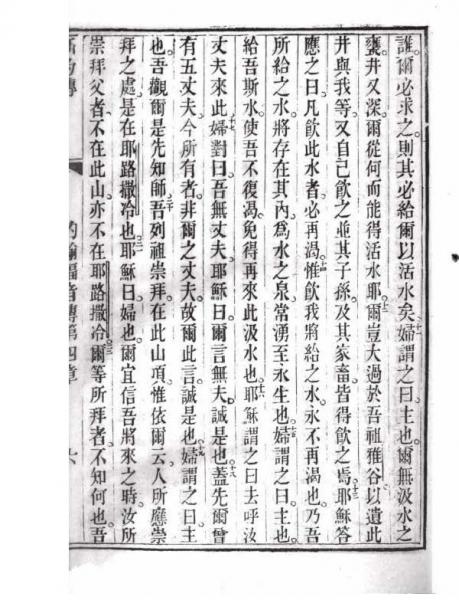 誰爾必求之則其必給爾以活水矣婦謂之曰主也爾無汲水之
甕井又深爾從何而能得活水耶爾豈大過於吾祖雅谷以遺此
井與我等又自己飲之並其子孫及其家畜皆得飲之焉耶穌答
應之曰凡飲此水者必再渴惟飲我將給之水永不再渴也乃吾
所給之水將存在其內為水之泉常湧至永生也婦謂之曰主也
給吾斯水使吾不復渴免得再來此汲水也耶穌謂之曰去呼汝
丈夫來此婦對曰吾無丈夫耶穌曰爾言無夫誠是也蓋先爾曾
有五丈夫今所有者非爾之丈夫故爾此言誠是也婦謂之曰主
也吾觀爾是先知師吾列祖崇拜在此山頂惟依爾云人所應崇
拜之處是在耶路撒冷也耶穌曰婦也爾宜信吾將來之時汝所
崇拜父者不在此山亦不在耶路撒冷爾等所拜者不知何也吾
約翰福音傳第四章 六